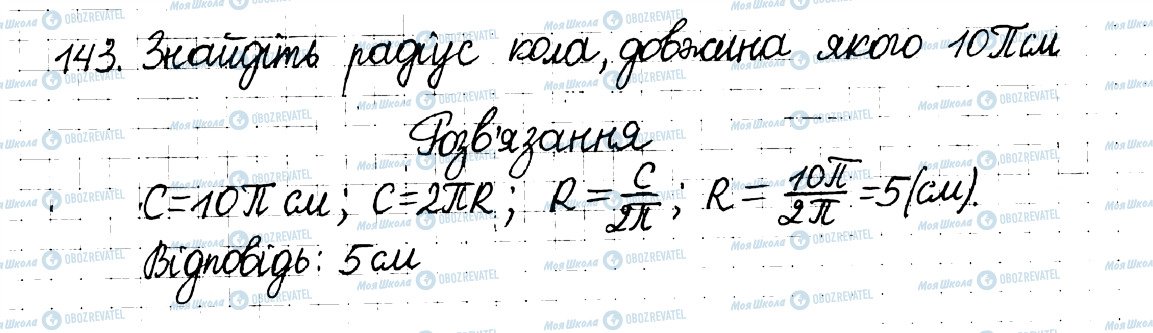 143. Знайдіть радіус кола, довжина якого 10π см
Розв'язання
C=10π см; C=2πR; R=C/2π; R=10π/2π=5(см).
Відповідь: 5 см